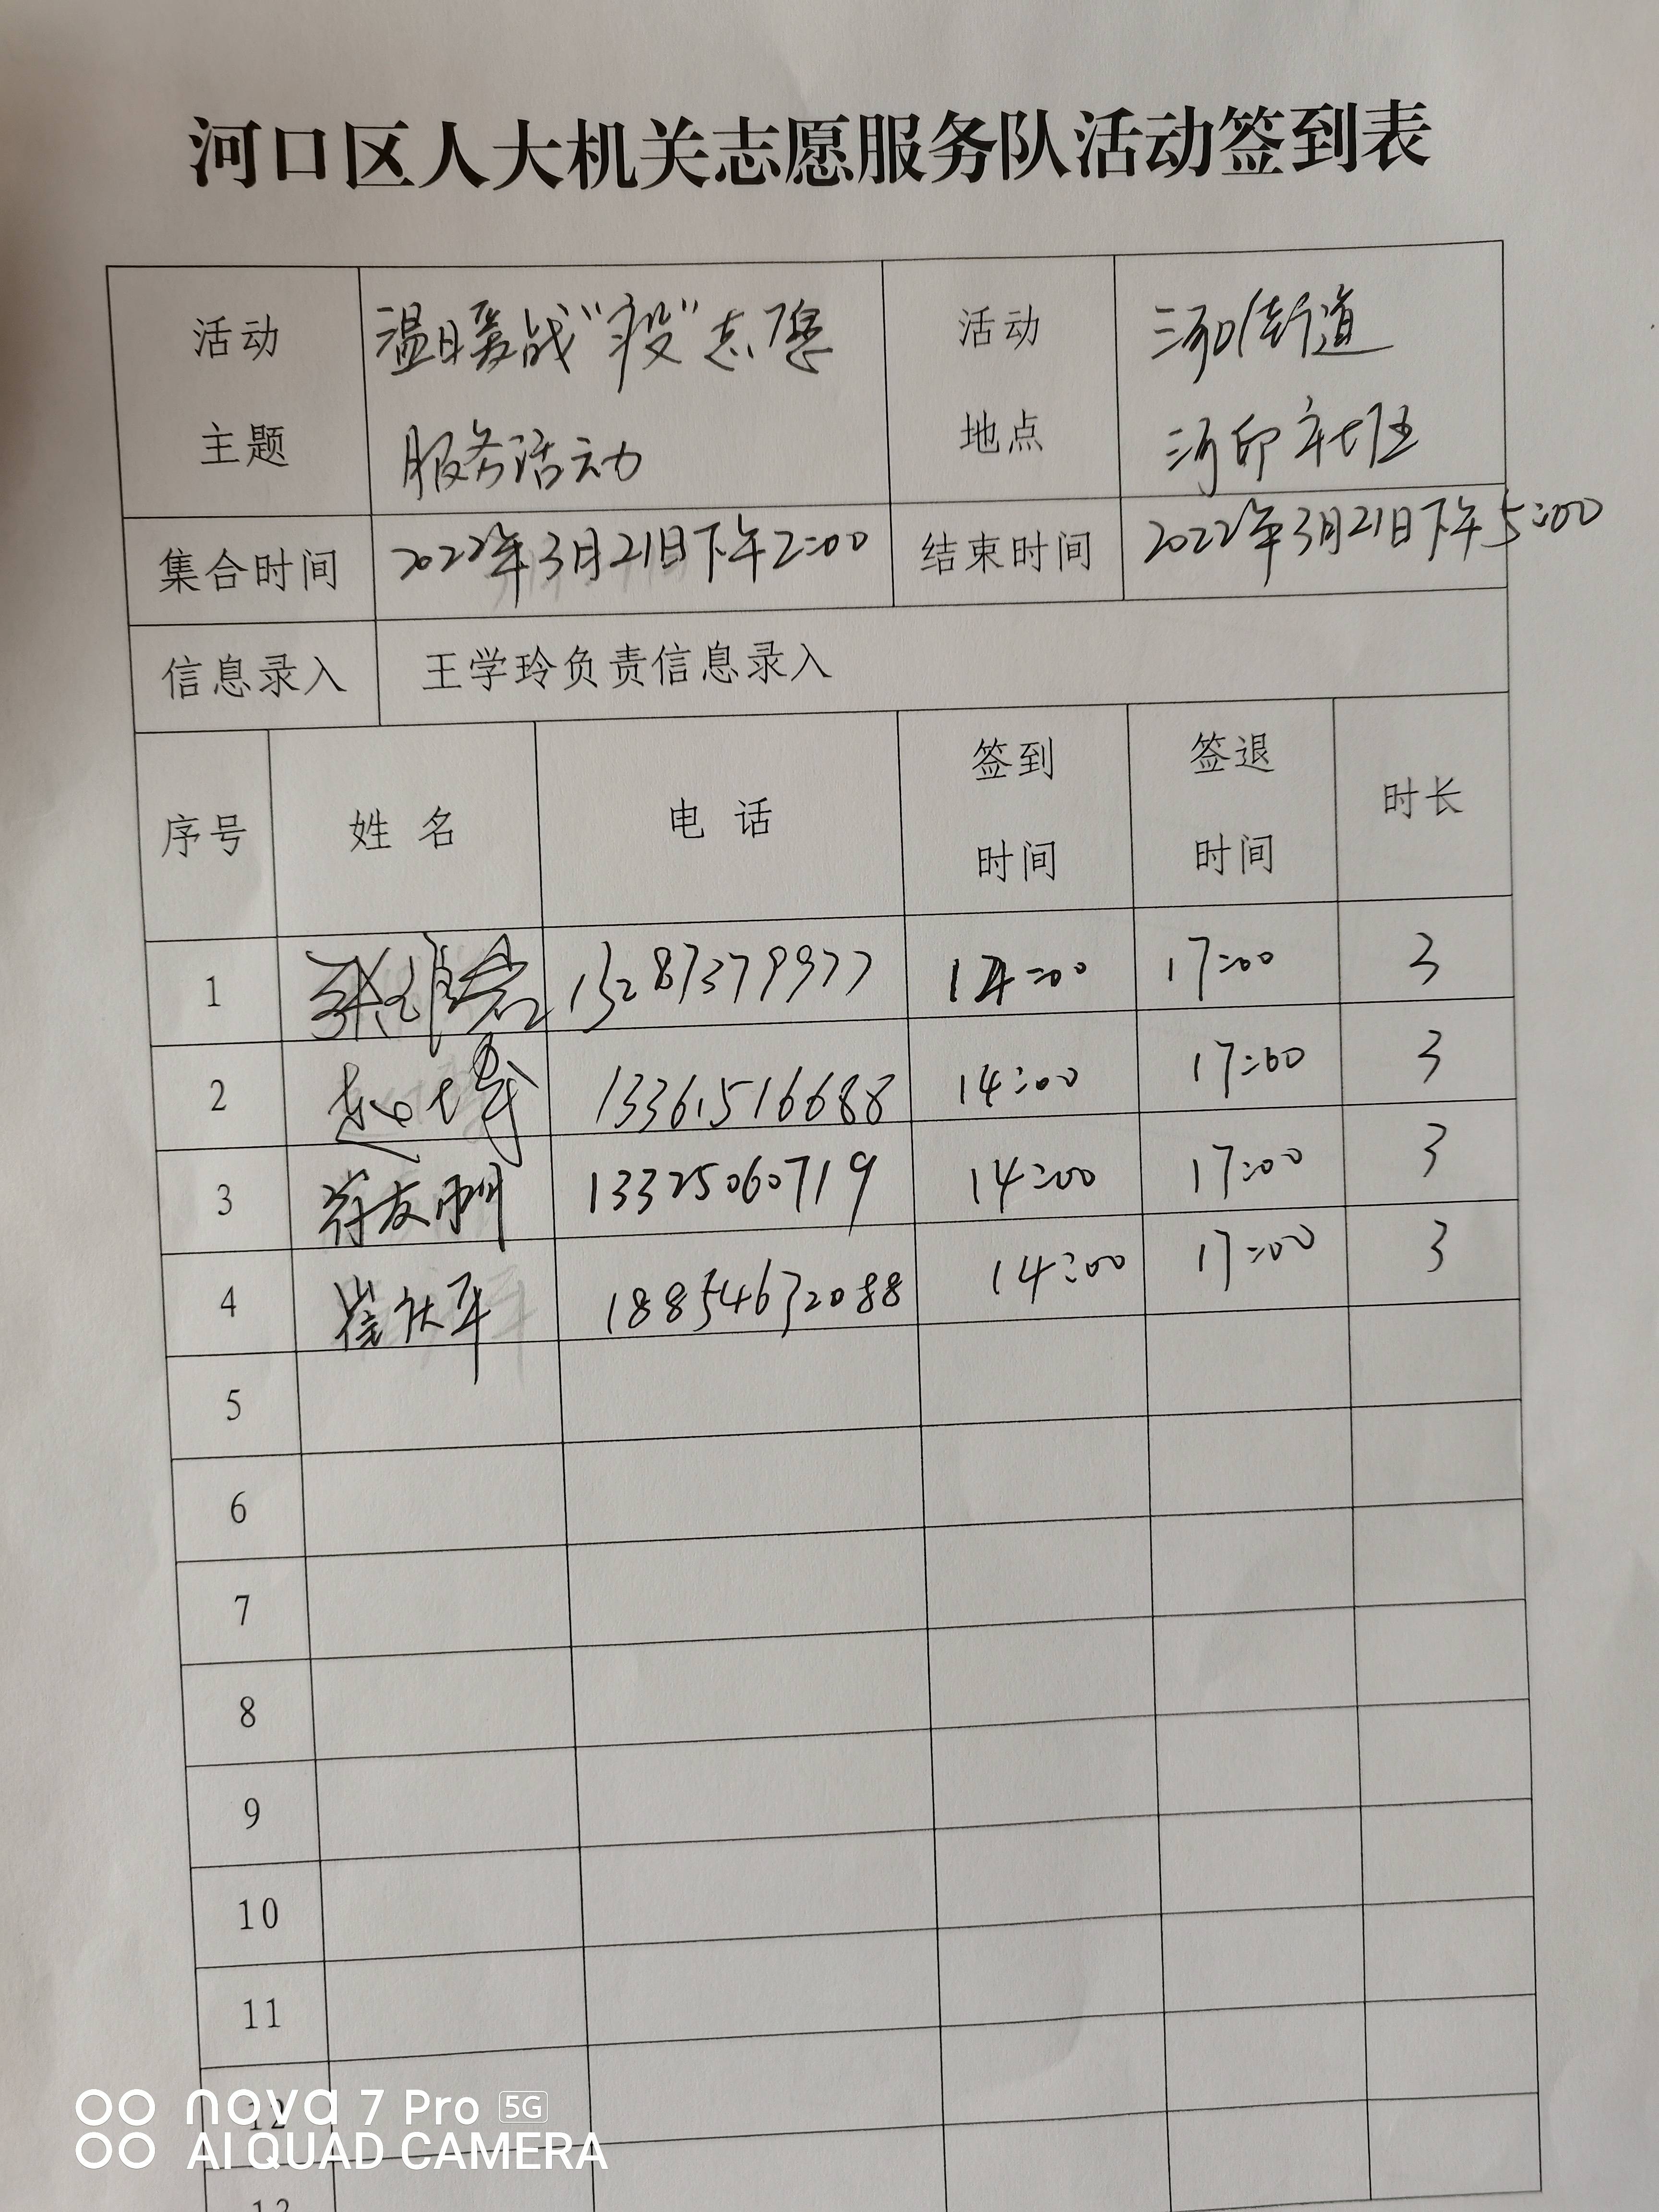 河口区人大机关志愿服务队活动签到表
活动 主题 温暖战“疫”志愿 服务活动 活动 地点 河口街道 河印社区
集合时间 2022年3月21日下午2:00 结束时间 2022年3月21日下午5:00
信息录入 王学玲负责信息录入
序号 姓名 电话 签到 时间 签退 时间 时长
1 15287379977 14:00 17:00 3
2 13361516688 14:00 17:00 3
3 13325060719 14:00 17:00 3
4 18854672088 14:00 17:00 3
5
6
7
8
9
10
11
12
13
nova 7 Pro 5G
AI QUAD CAMERA